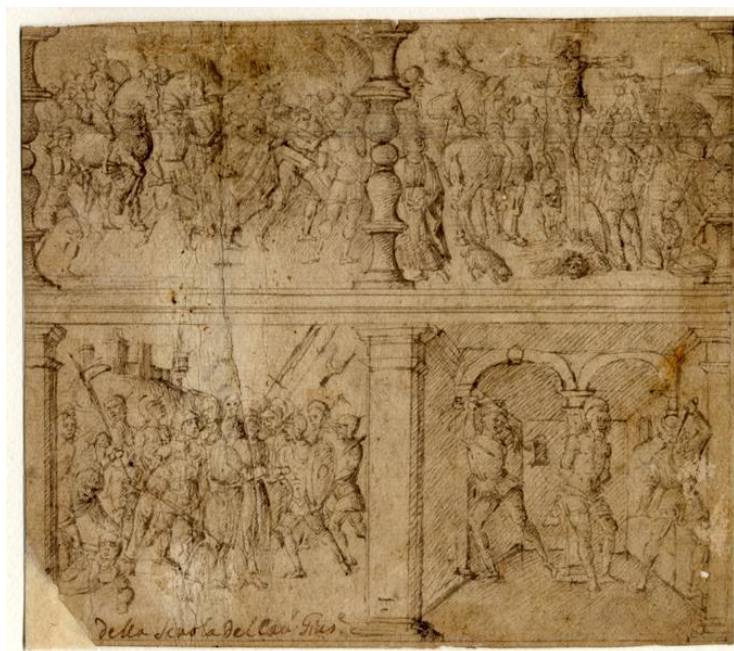 della scuola del Cav.